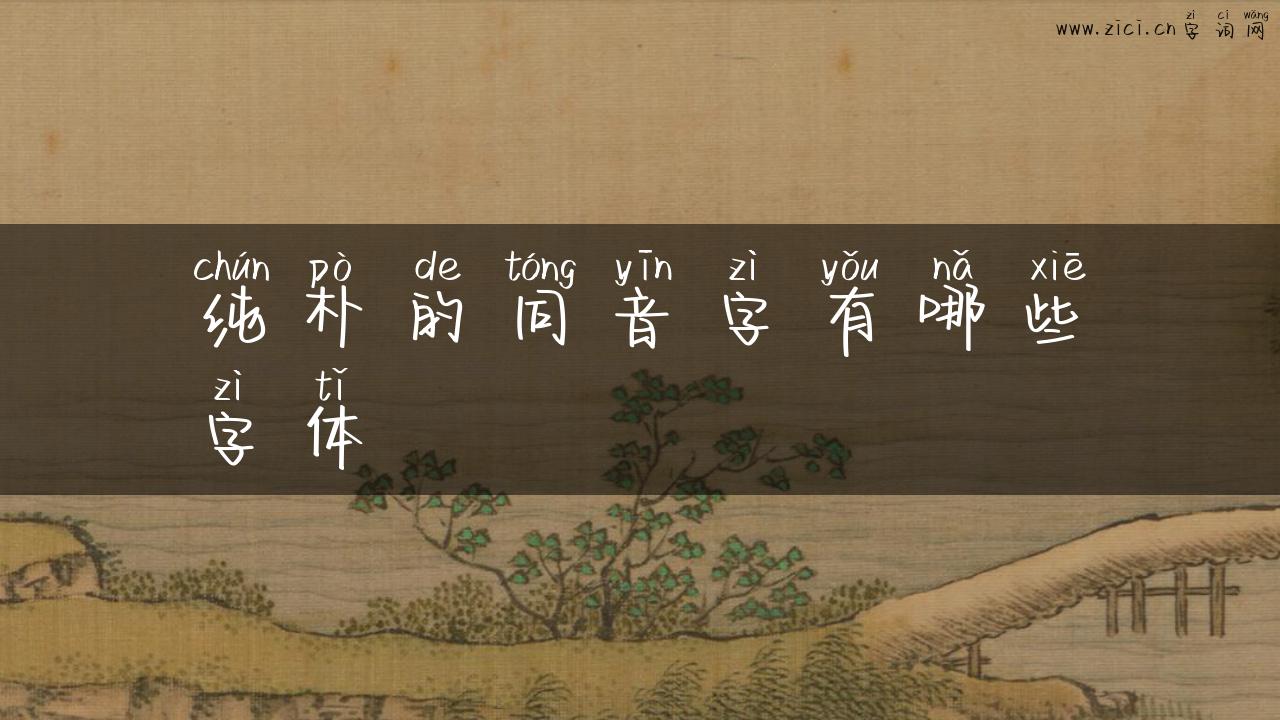 zì cí wǎng
www.zici.cn 字词网
chún pò de tóng yīn zì yǒu nǎ xiē
纯朴的同音字有哪些
zì tǐ
字体